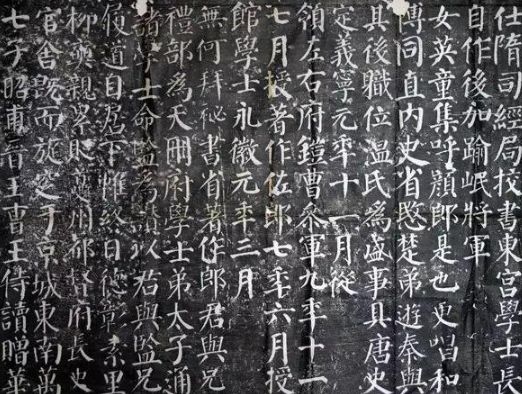 仕隋司經局校書東宮學士長
自作後加踰岷將軍
女英童集呼顏郎是也更唱和
傳同直内史省愍楚弟遊秦與
其後職位溫氏爲盛事具唐史
定義寧元年十一月從
領左右府鎧曹參軍九年十一
七月授著作佐郎七年六月授
館學士永徽元年三月
無何拜秘書省著作郎君與兄
禮部爲天冊府學士弟太子通
諸學士命監爲讚以君與監兄
履道自居下帷終日德彰素里
柳奭親累貶夔州都督府長史
官舍既而旋窆于京城東南萬
七子昭甫晉王曹王侍讀贈華